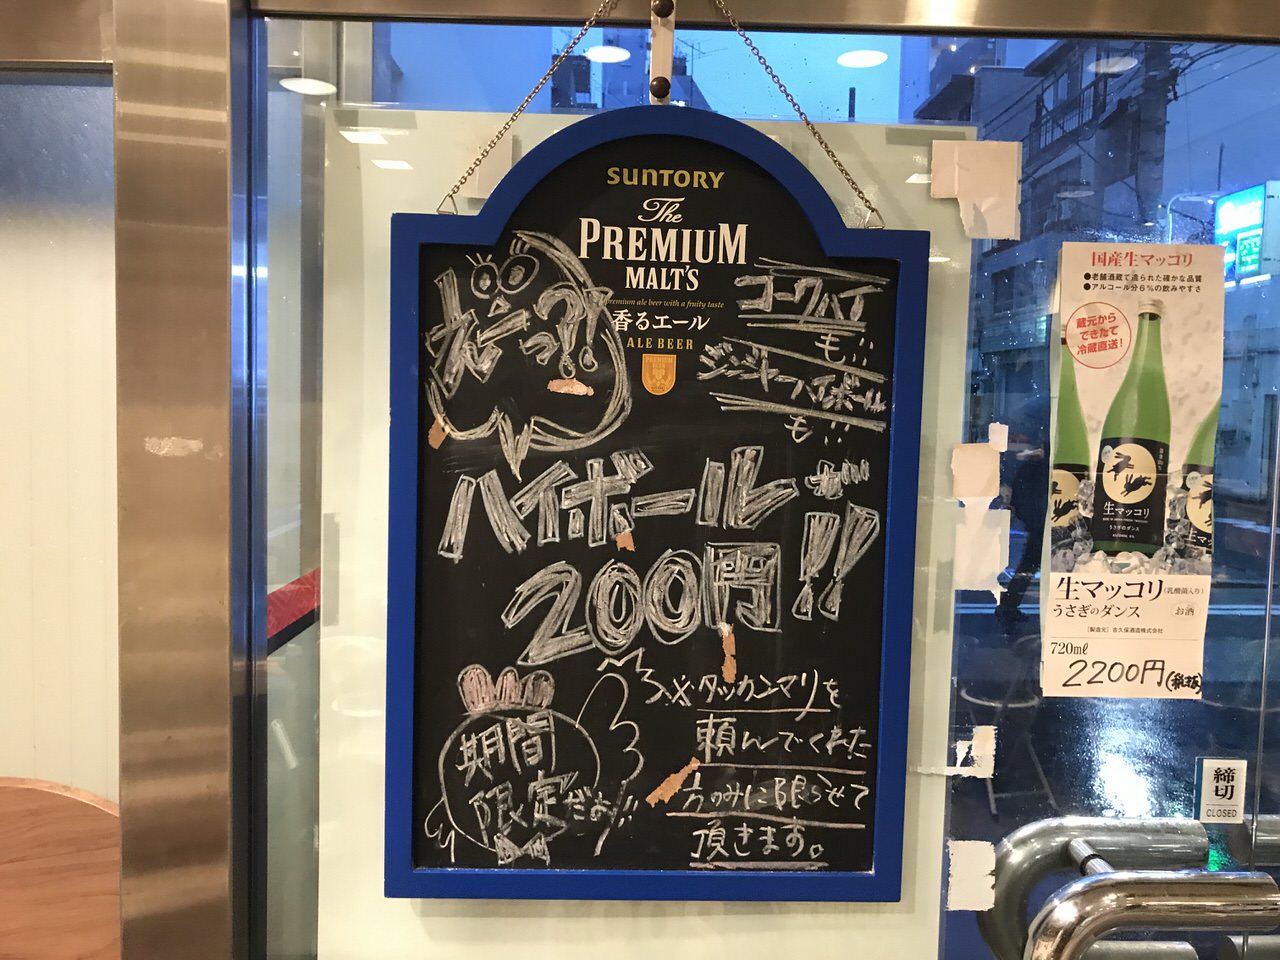 SUNTORY
The
PREMIUM
MALT'S
premium ale beer with a fruity taste
香るエール
ALE BEER
えーっ?!
コークハイ
も!!
ジンジャーハイボール
も!!
ハイボールが
200円!!
※タッカンマリを
頼んでくれた
方のみに限らせて
頂きます。
期間
限定だよ!!
国産生マッコリ
●老舗酒蔵で造られた確かな品質
●アルコール分6%の飲みやすさ
蔵元から
できたて
冷蔵直送!
生マッコリ
うさぎのダンス
生マッコリ(乳酸菌入り)
うさぎのダンス
お酒
[製造元] 吉久保酒造株式会社
720mℓ
2200円(税抜)
締切
CLOSED